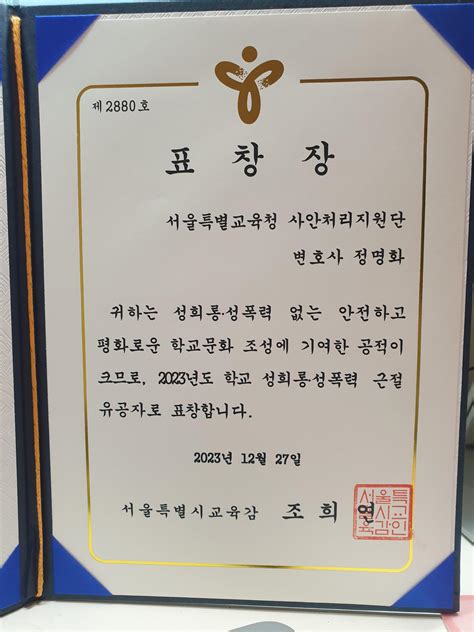 제 2880 호
표 창 장
서울특별교육청 사안처리지원단
변호사 정명화
귀하는 성희롱·성폭력 없는 안전하고
평화로운 학교문화 조성에 기여한 공적이
크므로, 2023년도 학교 성희롱·성폭력 근절
유공자로 표창합니다.
2023년 12월 27일
서울특별시교육감 조 희 연
서울특
별시교
육감인